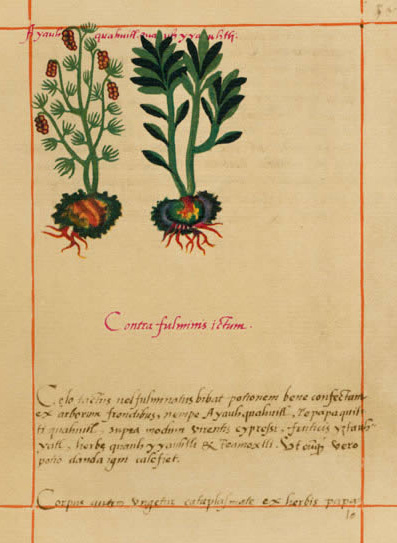 Ayauh quahuitl. quauhyyauhtli.
Contra fulminis ictum.
Cęlo tactus uel fulminatus bibat potionem bene confectam
ex arborum frondibus, nempe Ayauhquahuitl, Tepapaquil
ti quahuitl, supra modum uirentis cypressi, fruticis yztauh
yatl, herbę quauhyyauhtli & Teamoxtli. Utcũq̃ uero
potio danda igni calefiet.
Corpus autem ungetur cataplasmate ex herbis papa
lo